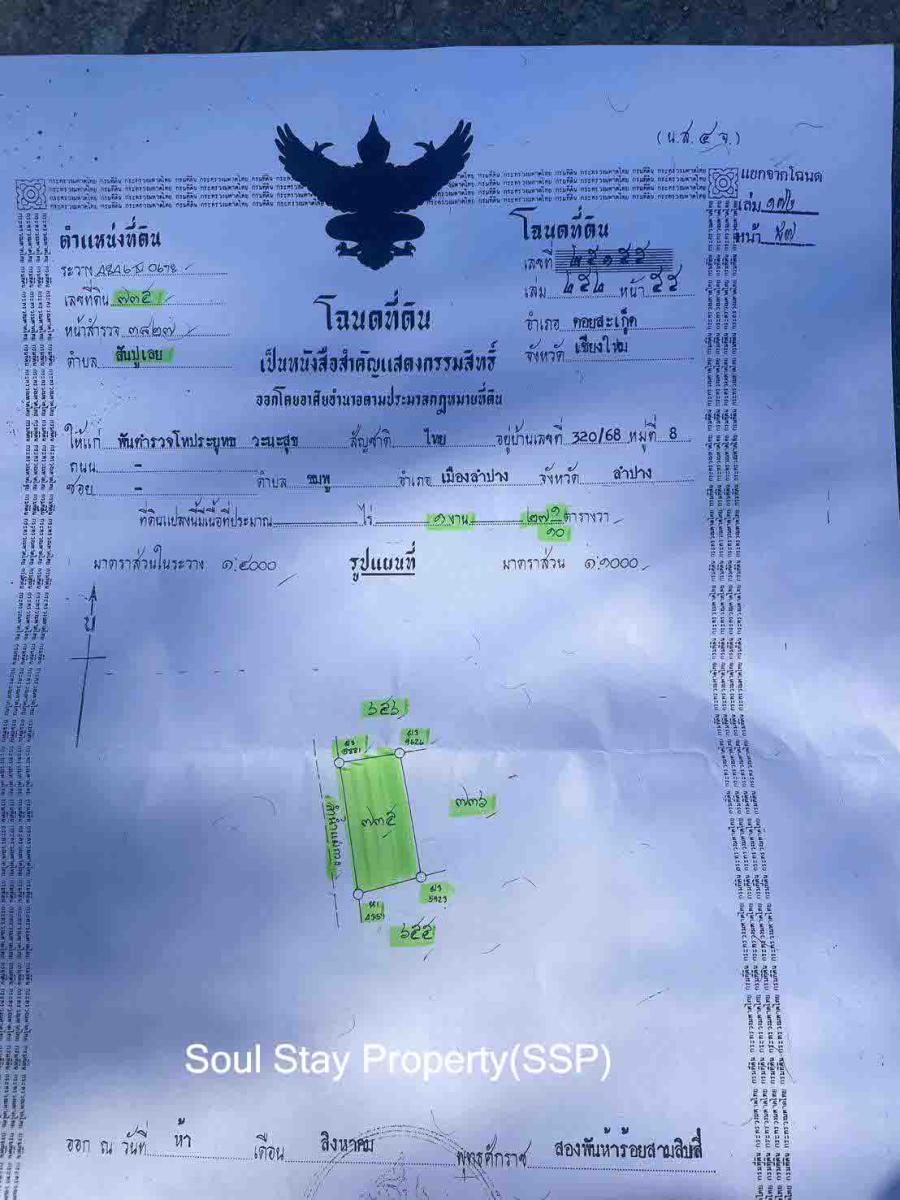 (น.ส.๔ จ.)
แยกจากโฉนด
เล่ม
หน้า ๕๗
ตำแหน่งที่ดิน
ระวาง
เลขที่ดิน ๗๓๕
หน้าสำรวจ ๓๘๒๗
ตำบล สันปูเลย
โฉนดที่ดิน
เลขที่
เล่ม ๔๕๔ หน้า ๕๕
อำเภอ ดอยสะเก็ด
จังหวัด เชียงใหม่
โฉนดที่ดิน
เป็นหนังสือสำคัญแสดงกรรมสิทธิ์
ออกโดยอาศัยอำนาจตามประมวลกฎหมายที่ดิน
ให้แก่ พันตำรวจโทประยุทธ วะนะสุข สัญชาติ ไทย อยู่บ้านเลขที่ 320/68 หมู่ที่ 8
ถนน -
ซอย - ตำบล ชมพู อำเภอ เมืองลำปาง จังหวัด ลำปาง
ที่ดินแปลงนี้มีเนื้อที่ประมาณ ไร่ ๑ งาน ๒๗ ๑/๑๐ ตารางวา
มาตราส่วนในระวาง ๑:๔๐๐๐ รูปแผนที่ มาตราส่วน ๑:๑๐๐๐
น
๖๕๖
๗๓๖
๗๓๕
๖๕๕
Soul Stay Property(SSP)
ออก ณ วันที่ ห้า เดือน สิงหาคม พุทธศักราช สองพันห้าร้อยสามสิบสี่